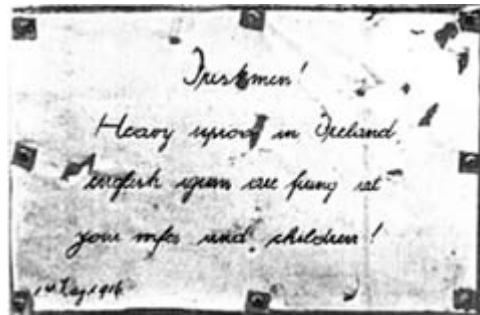 Irishmen!
Heavy uproar in Ireland
english guns are firing at
your wifes and children!
1st May 1916